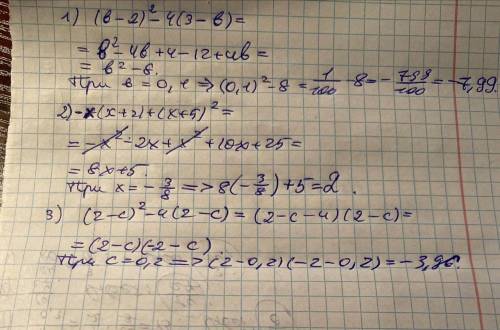 1) (в-2)²-4(3-в)=
= в²-4в+4-12+4в=
= в²-8.
При в=0,1 => (0,1)²-8 = 1/100 - 8 = -799/100 = -7,99.
2) -x(x+2)+(x+5)²=
= -x²-2x+x²+10x+25=
= 8x+5.
При x=-3/8 => 8(-3/8)+5=2.
3) (2-c)²-4(2-c)=(2-c-4)(2-c)=
=(2-c)(-2-c)
При c=0,2 => (2-0,2)(-2-0,2)=-3,96.